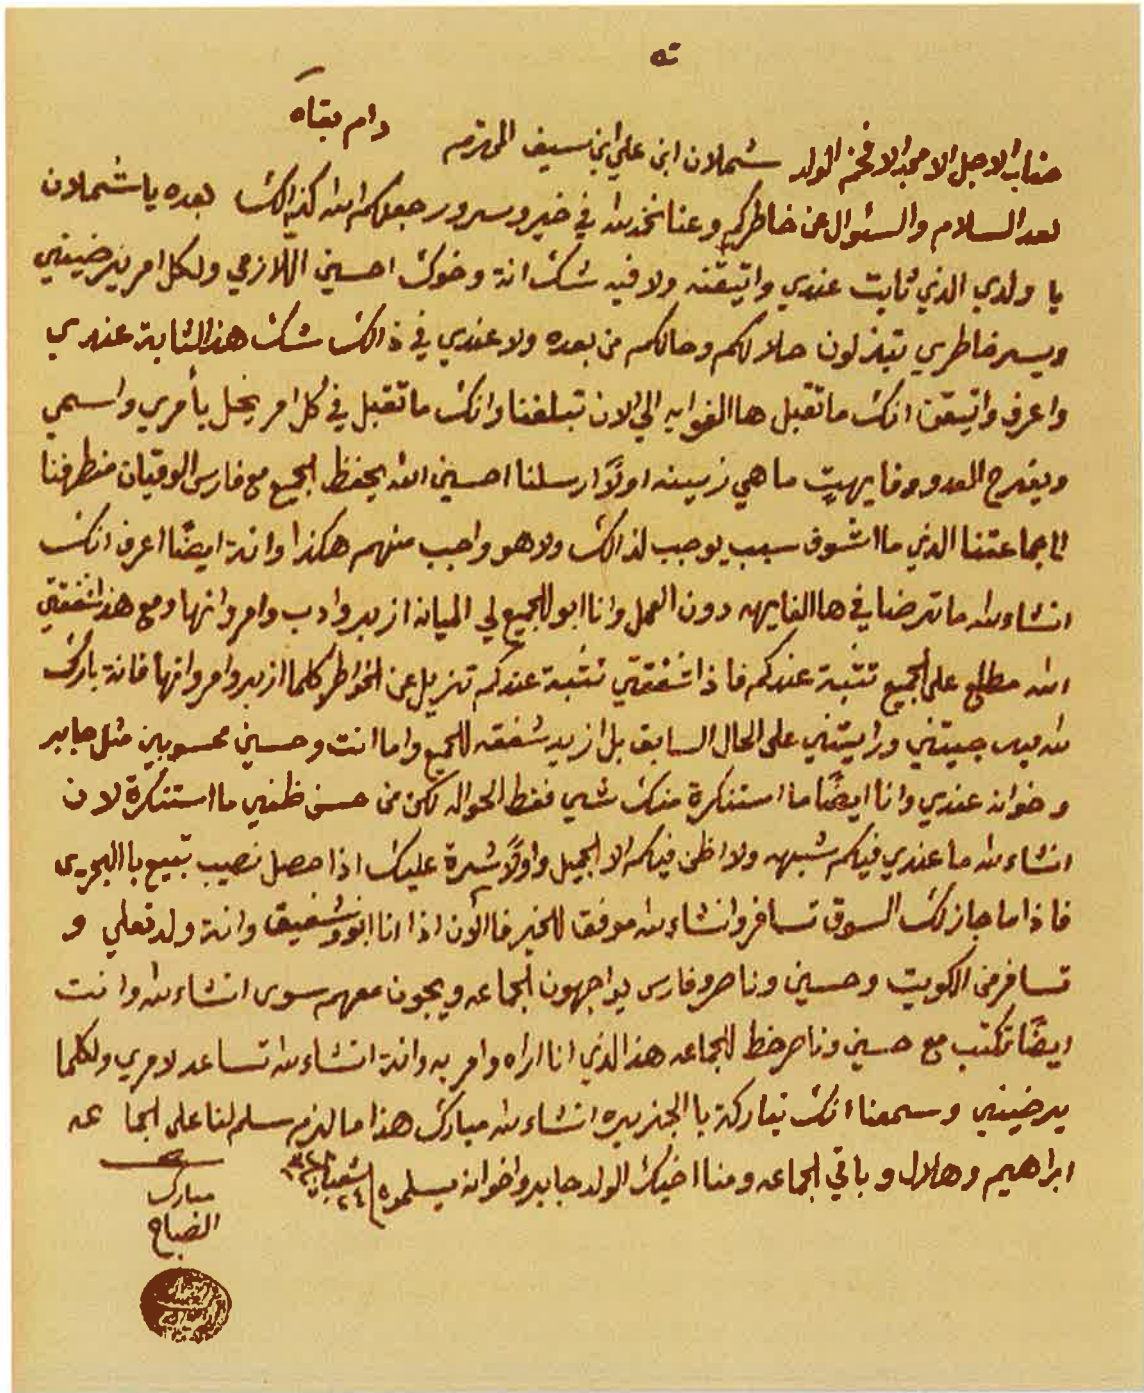 دام بقاه
جناب الاجل الامجد الافخم الولد شملان ابن علي ابن سيف المحترم
بعد السلام والسئوال عن خاطركم وعنا نحمد الله في خير وسرور جعلكم الله كذالك بعده يا شملان
يا ولدي الذي ثابت عندي واتيقنه ولا فيه شك انة وخوك احسين اللازمي ولكل امر يرضيني
ويسر خاطري تبذلون حلالكم وحالكم من بعده ولا عندي في ذالك شك هذا الثابة عندي
واعرف واتيقن انك ما تقبل هاالغوايه الي الان تبلغنا وانك ما تقبل في كل امر يخل بأمري واسمي
ويفرح العدو وفا يهيت ما هي زيينه اولاً ارسلنا احسين الله يحفظ الجميع مع فارس الوقيان منطرفنا
الجماعتنا الذي ما اشوف سبب يوجب لذالك ولا هو واجب منهم هكذا وانة ايضاً اعرف انك
انشاء الله ما ترضا في هاالغايهه دون العمل وانا ابو للجميع لي الميانه ازبر وادب وامر وانها ومع هذا شفقتي
الله مطلع على الجميع تثبة عندكم فاذا شفقتي تثبة عندكم تزيل عن الخواطر كلما ازبر وامر وانها فانة بارك
الله فيك جيتني ورايتني على الحال السابق بل ازيد شفقه للجميع واما انت وحسين محسوبين مثل جابر
وخوانه عندي وانا ايضاً ما استنكرة منك شي فقط الحواله لكن من حسن ظني ما استنكرة لان
انشاء الله ما عندي فيكم شبهه ولا اظن فيكم الا الجميل واولاً شرة عليك اذا حصل نصيب تبيع باالبحرين
فاذا ما جاز لك السوق تسافر وانشاء الله موفق للخير فاالأن اذا انا ابو وشفيق وانة ولد تعلي و
تسافر من الكويت وحسين وناصر وفارس يواجهون الجماعه ويجون معهم سوى انشاء الله وانت
ايضاً تكتب مع حسين وناصر خط للجماعه هذا الذي انا اراه وامر به وانة انشاء الله تساعد لامري ولكلما
يرضيني وسمعنا انك تباركة باالجزيره انشاء الله مبارك هذا ما لزم سلم لنا على الجماعه
ابراهيم وهلال وباقي الجماعه ومنا اخيك الولد جابر واخوانه يسلمون ٢٤ شعبان
مبارك
الصباح